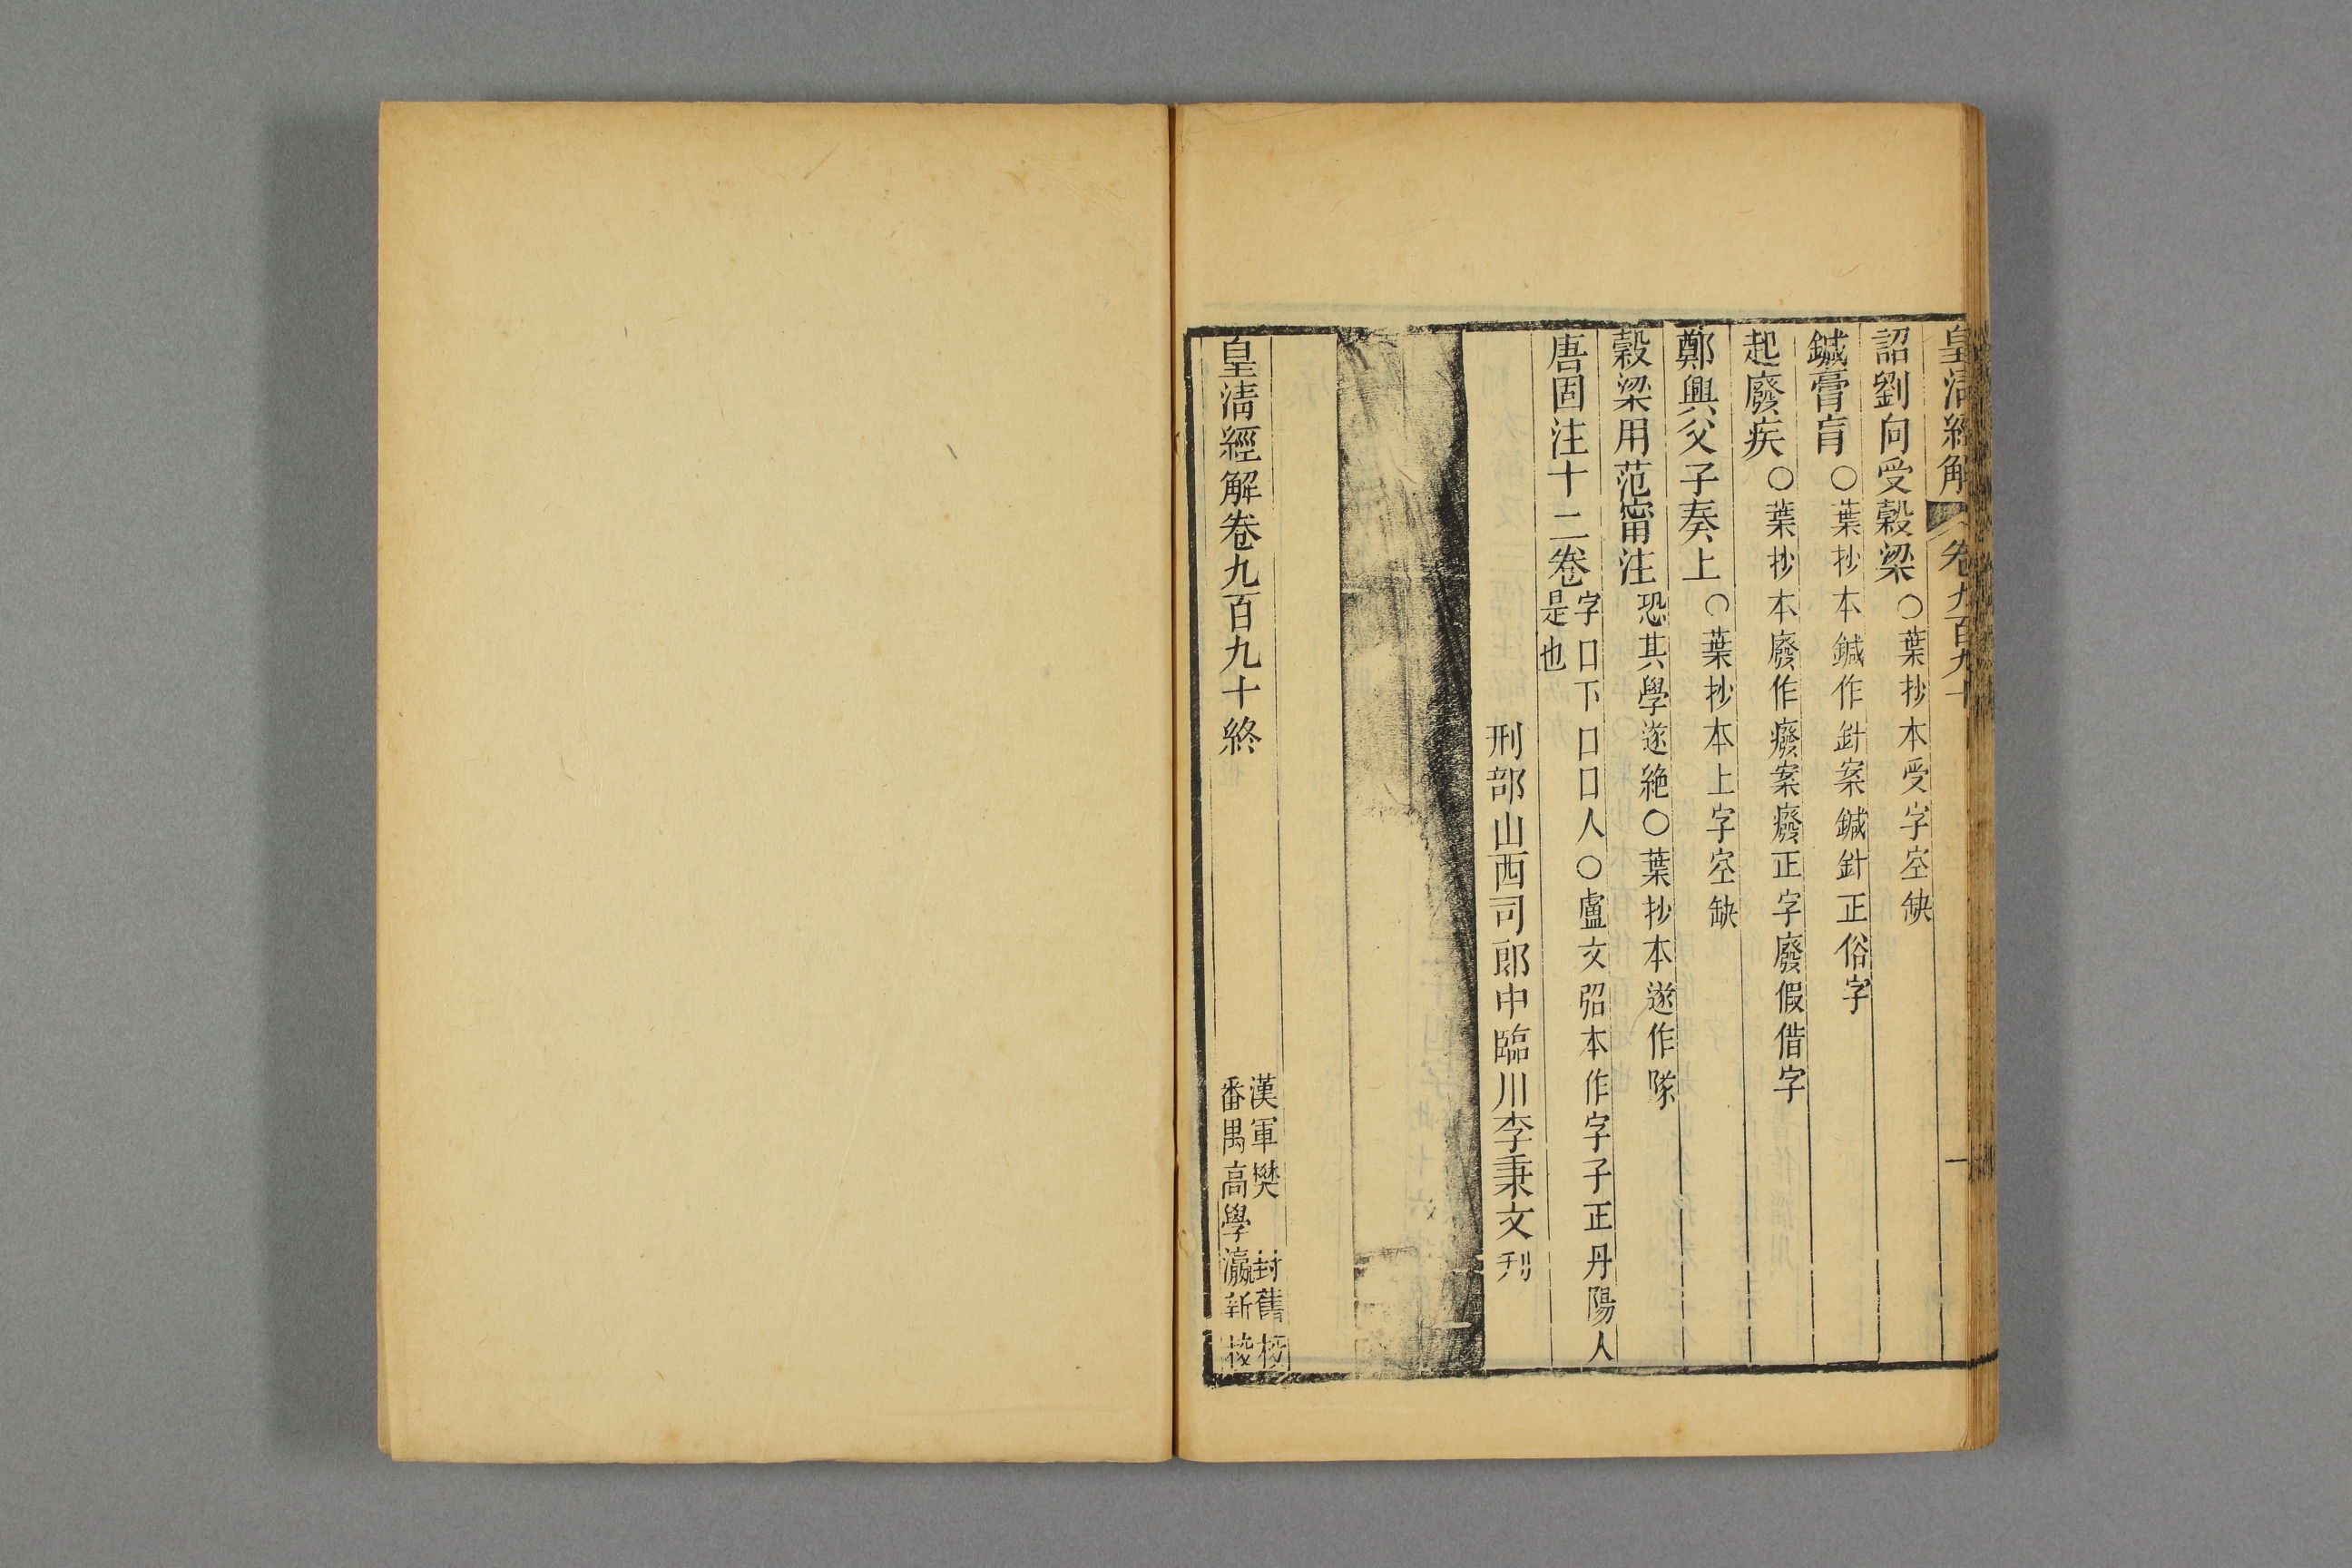 皇清經解 卷九百九十 一
詔劉向受穀梁○葉抄本受字空缺
鍼膏肓○葉抄本鍼作針案鍼針正俗字
起廢疾○葉抄本廢作癈案癈正字廢假借字
鄭興父子奏上○葉抄本上字空缺
穀梁用范甯注恐其學遂絶○葉抄本遂作隊
唐固注十二卷字口下口口人○盧文弨本作字子正丹陽人
是也
刑部山西司郎中臨川李秉文刋
皇清經解卷九百九十終
漢軍樊封舊校
番禺高學瀛新校